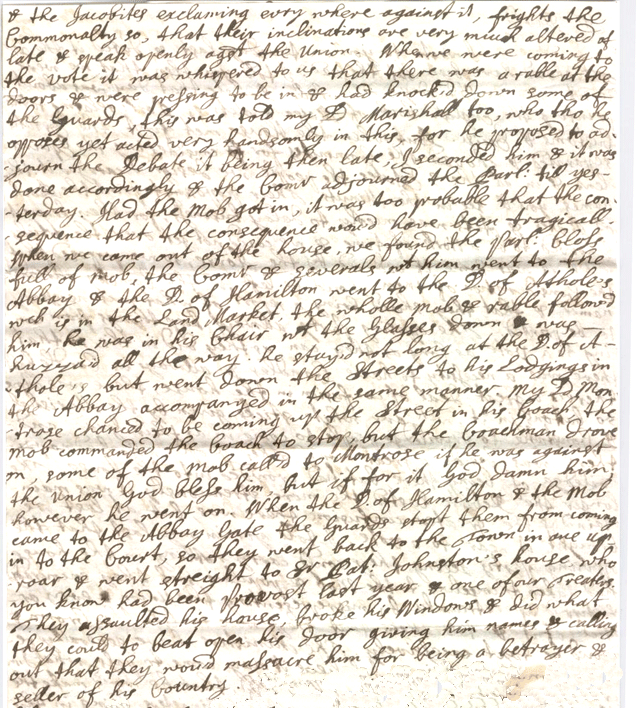 & the Jacobites exclaming evry where against it, frights the
Commonalty so, that their inclinations are very much altered of
late & speak openly agst the Union. When we were coming to
the vote it was whispered to us that there was a rable at the
doors & were pressing to be in & had knocked down some of
the Guards, this was told my Ld Marishall too, who tho he
opposes yet acted very handsomly in this, for he proposed to ad-
-journ the Debate it being then late, I seconded him & it was
done accordingly & the Comr adjourned the Parlt. till yes-
-terday. Had the Mob got in, it was too probable that the con-
-sequence that the consequence would have been tragicall
when we came out of the house, we found the Parlt. Closs
full of mob, the Comr & severals wt him went to the
Abbay & the D. of Hamilton went to the D. of Atholes
wch is in the Land Market, the wholle mob & rable followed
him he was in his Chair wt the Glasses down & was
huzza'd all the way. he stay'd not long at the D. of At-
-thole's but went down the Streets to his Lodgings in
the Abbay accompanged in the same manner My Ld Mon-
trose chanced to be coming up the Street in his Coach, the
mob commanded the Coach to stop, but the Coachman drove
on, some of the mob call'd to Montrose if he was against
the Union God bless him, but if for it God damn him
however he went on. When the D. of Hamilton & the Mob
came to the Abbay Gate the Guards stopt them from coming
in to the Court, so they went back to the Town in one up-
roar & went streight to Sr Pat: Johnston's house who
you know had been Provost last year & one of our Treaters.
They assaulted his house, broke his Windows & did what
they could to beat open his door giving him names & calling
out that they would massacre him for being a betrayer &
seller of his Country.